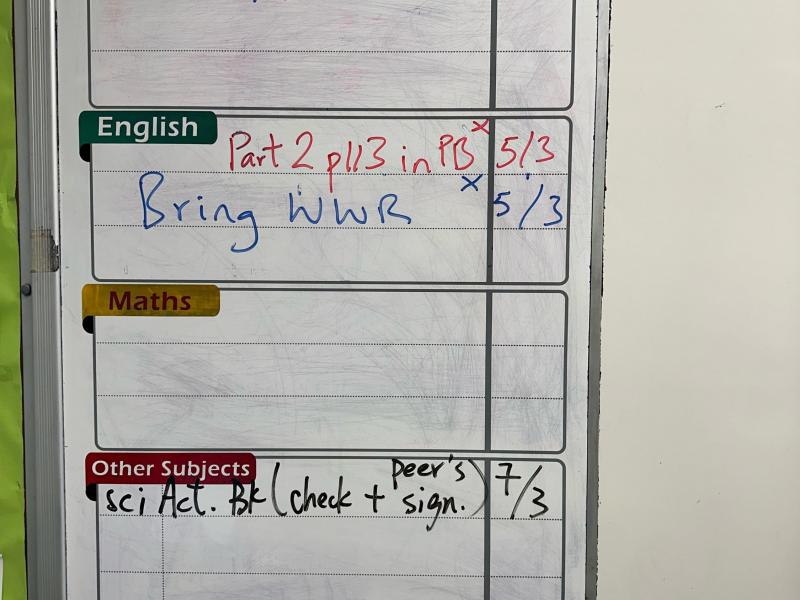 English
Part 2 p113 in PB x 5/3
Bring WWR x 5/3
Maths
Other Subjects
sci Act. Bk (check + peer's sign.) 7/3